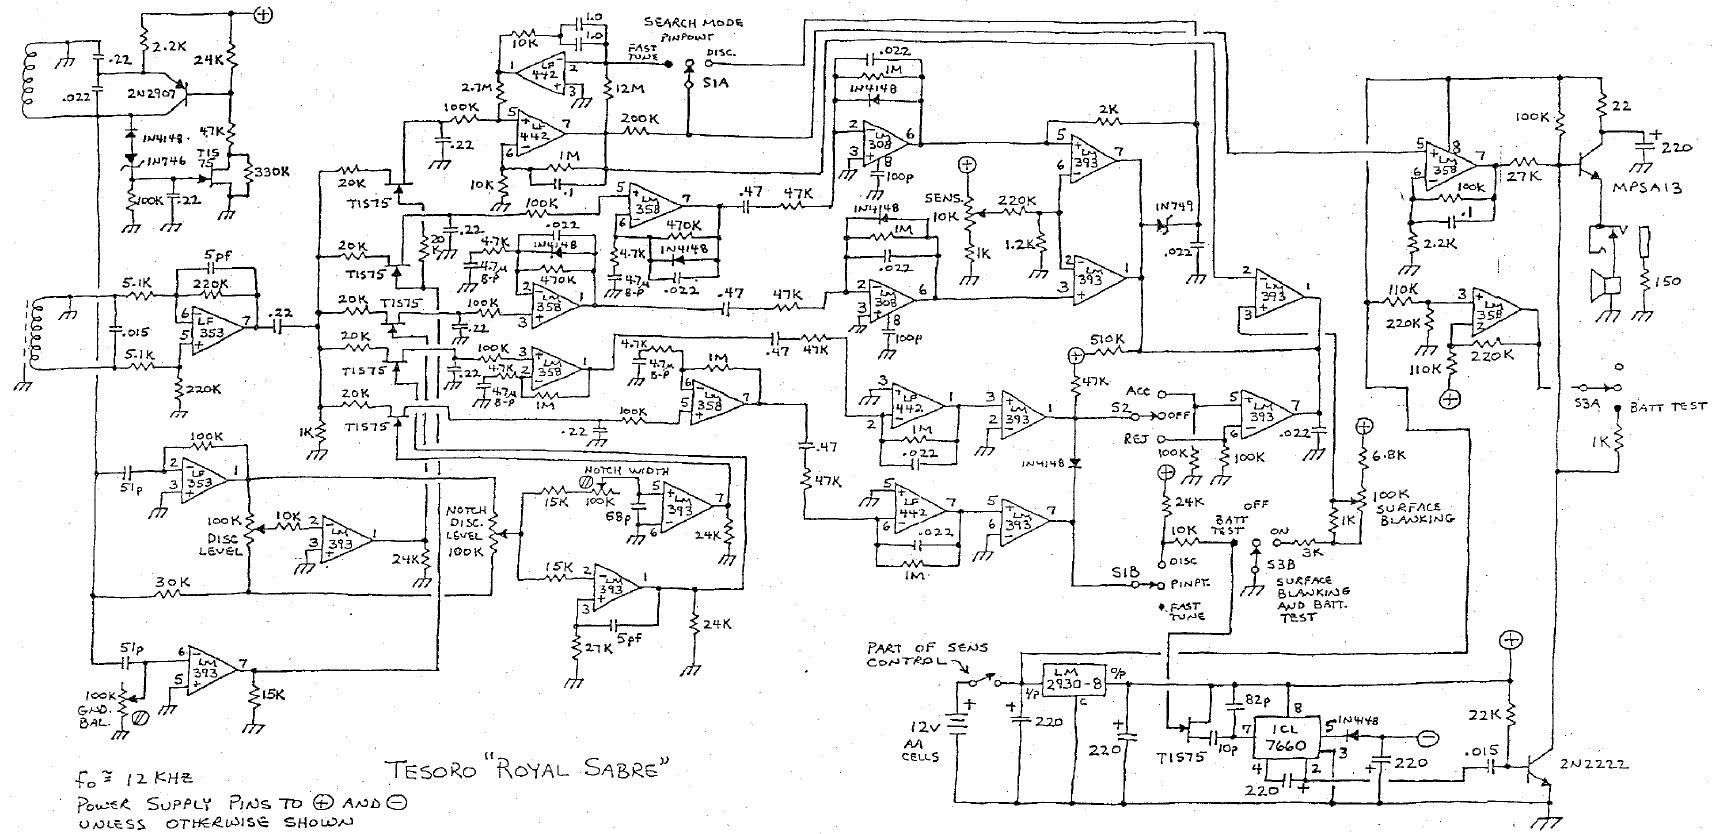 +
1.0
1.0
10K
SEARCH MODE
PINPOINT
FAST
TUNE
DISC.
S1A
.22
2.2K
24K
2N2907
.022
1N4148
1N746
4.7K
TIS
75
330K
100K
.22
LF
442
1
2
3
2.7M
12M
100K
200K
.22
5
6
7
LF
442
1M
.1
10K
.022
1M
1N4148
2
3
6
8
LM
308
100P
2K
5
6
7
LM
393
+
SENS.
10K
220K
1K
1.2K
1N749
.022
2
3
1
LM
393
100K
22
+
220
5
6
8
7
LM
358
27K
100K
.1
2.2K
MPSA13
150
20K
TIS75
100K
5
6
7
LM
358
.47
47K
470K
4.7K
1N4148
4.7µ
B-P
.022
20K
TIS75
20K
.22
.022
4.7K
1N4148
4.7µ
B-P
470K
1N4148
1M
.022
2
3
6
8
LM
308
100P
2
3
1
LM
393
5pf
220K
5.1K
.22
.015
5.1K
6
5
7
LF
353
220K
20K
TIS75
100K
.22
3
LM
358
.47
47K
20K
TIS75
100K
.22
4.7K
4.7µ
B-P
3
2
1
LM
358
1M
.47
47K
4.7K
4.7µ
B-P
1M
6
5
7
LM
358
20K
TIS75
1K
100K
.22
510K
+
47K
3
2
1
LF
442
1M
.022
3
2
1
LM
393
ACC
S2
OFF
REJ
5
6
7
LM
393
.022
100K
100K
1N4148
110K
220K
3
2
LM
358
110K
+
220K
S3A
BATT TEST
1K
+
6.8K
100K
SURFACE
BLANKING
100K
51P
2
3
1
LF
353
100K
DISC
LEVEL
10K
2
3
1
LM
393
24K
30K
NOTCH
DISC.
LEVEL
100K
NOTCH WIDTH
15K
100K
68P
5
6
7
LM
393
24K
15K
2
3
1
LM
393
5pf
27K
24K
.47
47K
5
6
7
LF
442
.022
1M
5
6
7
LM
393
+
24K
10K
OFF
BATT
TEST
ON
3K
1K
S1B
DISC
PINPT.
FAST
TUNE
S3B
SURFACE
BLANKING
AND BATT.
TEST
51P
6
5
7
LM
393
15K
100K
GND.
BAL.
PART OF SENS
CONTROL
+
12V
AA
CELLS
+
220
I/P
LM
2930-8
O/P
C
+
220
82P
TIS75
10P
7
8
5
3
4
2
ICL
7660
1N4148
−
220
+
220
+
+
22K
.015
2N2222
TESORO "ROYAL SABRE"
fo ≅ 12 KHZ
POWER SUPPLY PINS TO + AND −
UNLESS OTHERWISE SHOWN